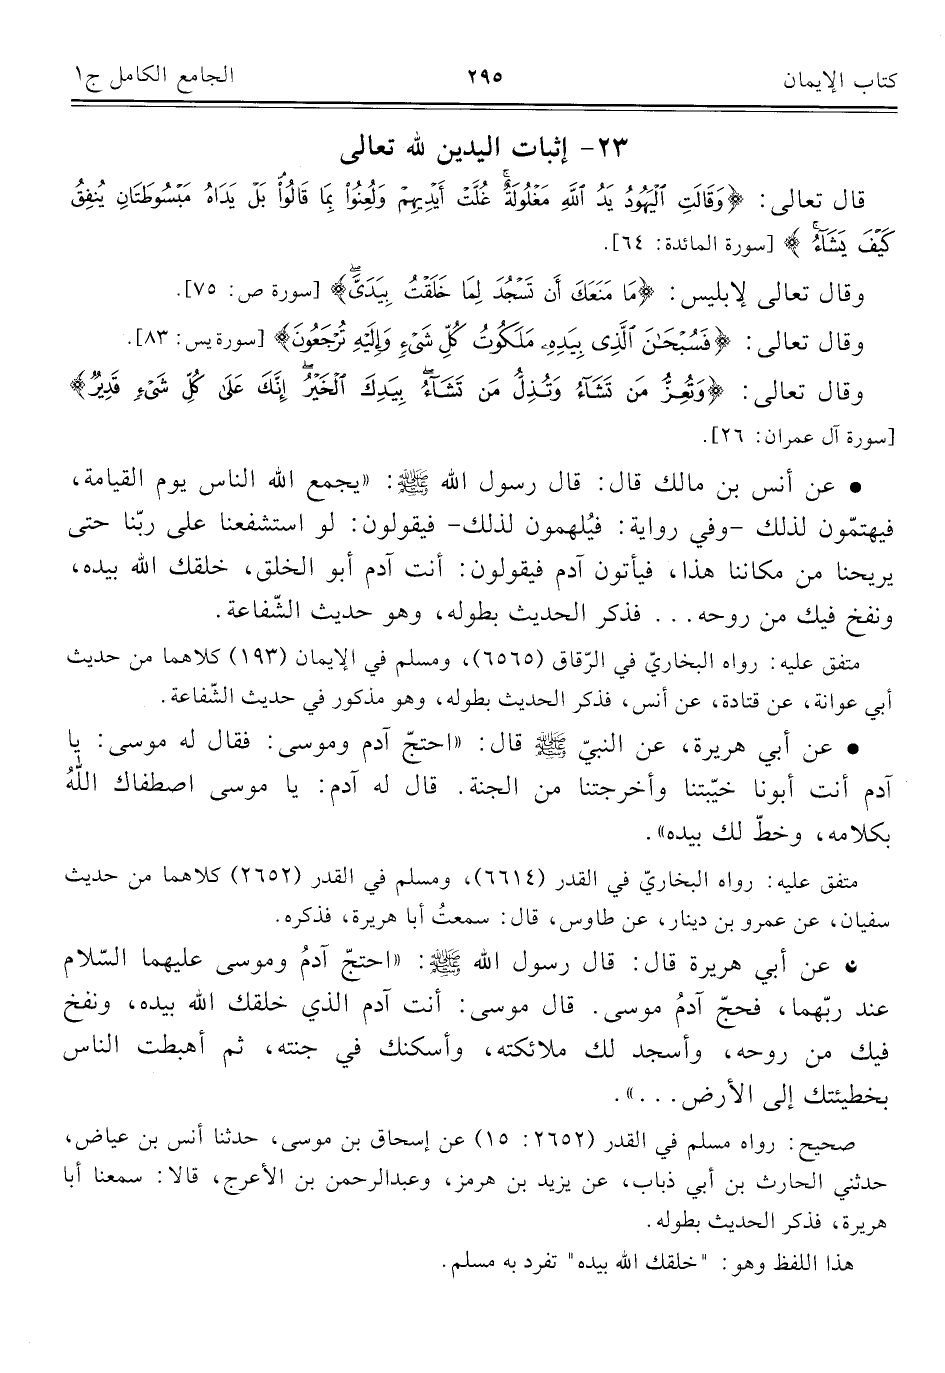 كتاب الإيمان ٢٩٥ الجامع الكامل ج١
٢٣- إثبات اليدين لله تعالى
قال تعالى: ﴿وَقَالَتِ ٱلْيَهُودُ يَدُ ٱللَّهِ مَغْلُولَةٌ ۚ غُلَّتْ أَيْدِيهِمْ وَلُعِنُوا۟ بِمَا قَالُوا۟ ۘ بَلْ يَدَاهُ مَبْسُوطَتَانِ يُنفِقُ
كَيْفَ يَشَآءُ ۚ﴾ [سورة المائدة: ٦٤].
وقال تعالى لإبليس: ﴿مَا مَنَعَكَ أَن تَسْجُدَ لِمَا خَلَقْتُ بِيَدَىَّ ۖ﴾ [سورة ص: ٧٥].
وقال تعالى: ﴿فَسُبْحَـٰنَ ٱلَّذِى بِيَدِهِۦ مَلَكُوتُ كُلِّ شَىْءٍ وَإِلَيْهِ تُرْجَعُونَ﴾ [سورة يس: ٨٣].
وقال تعالى: ﴿وَتُعِزُّ مَن تَشَآءُ وَتُذِلُّ مَن تَشَآءُ ۖ بِيَدِكَ ٱلْخَيْرُ ۖ إِنَّكَ عَلَىٰ كُلِّ شَىْءٍ قَدِيرٌ﴾
[سورة آل عمران: ٢٦].
• عن أنس بن مالك قال: قال رسول الله ﷺ: «يجمع الله الناس يوم القيامة،
فيهتمّون لذلك -وفي رواية: فيُلهمون لذلك- فيقولون: لو استشفعنا على ربّنا حتى
يريحنا من مكاننا هذا، فيأتون آدم فيقولون: أنت آدم أبو الخلق، خلقك الله بيده،
ونفخ فيك من روحه... فذكر الحديث بطوله، وهو حديث الشّفاعة.
متفق عليه: رواه البخاريّ في الرّقاق (٦٥٦٥)، ومسلم في الإيمان (١٩٣) كلاهما من حديث
أبي عوانة، عن قتادة، عن أنس، فذكر الحديث بطوله، وهو مذكور في حديث الشّفاعة.
• عن أبي هريرة، عن النبيّ ﷺ قال: «احتجّ آدم وموسى: فقال له موسى: يا
آدم أنت أبونا خيّبتنا وأخرجتنا من الجنة. قال له آدم: يا موسى اصطفاك اللَّهُ
بكلامه، وخطّ لك بيده».
متفق عليه: رواه البخاريّ في القدر (٦٦١٤)، ومسلم في القدر (٢٦٥٢) كلاهما من حديث
سفيان، عن عمرو بن دينار، عن طاوس، قال: سمعتُ أبا هريرة، فذكره.
• عن أبي هريرة قال: قال رسول الله ﷺ: «احتجّ آدمُ وموسى عليهما السّلام
عند ربّهما، فحجّ آدمُ موسى. قال موسى: أنت آدم الذي خلقك الله بيده، ونفخ
فيك من روحه، وأسجد لك ملائكته، وأسكنك في جنته، ثم أهبطت الناس
بخطيئتك إلى الأرض...».
صحيح: رواه مسلم في القدر (٢٦٥٢: ١٥) عن إسحاق بن موسى، حدثنا أنس بن عياض،
حدثني الحارث بن أبي ذباب، عن يزيد بن هرمز، وعبدالرحمن بن الأعرج، قالا: سمعنا أبا
هريرة، فذكر الحديث بطوله.
هذا اللفظ وهو: "خلقك الله بيده" تفرد به مسلم.